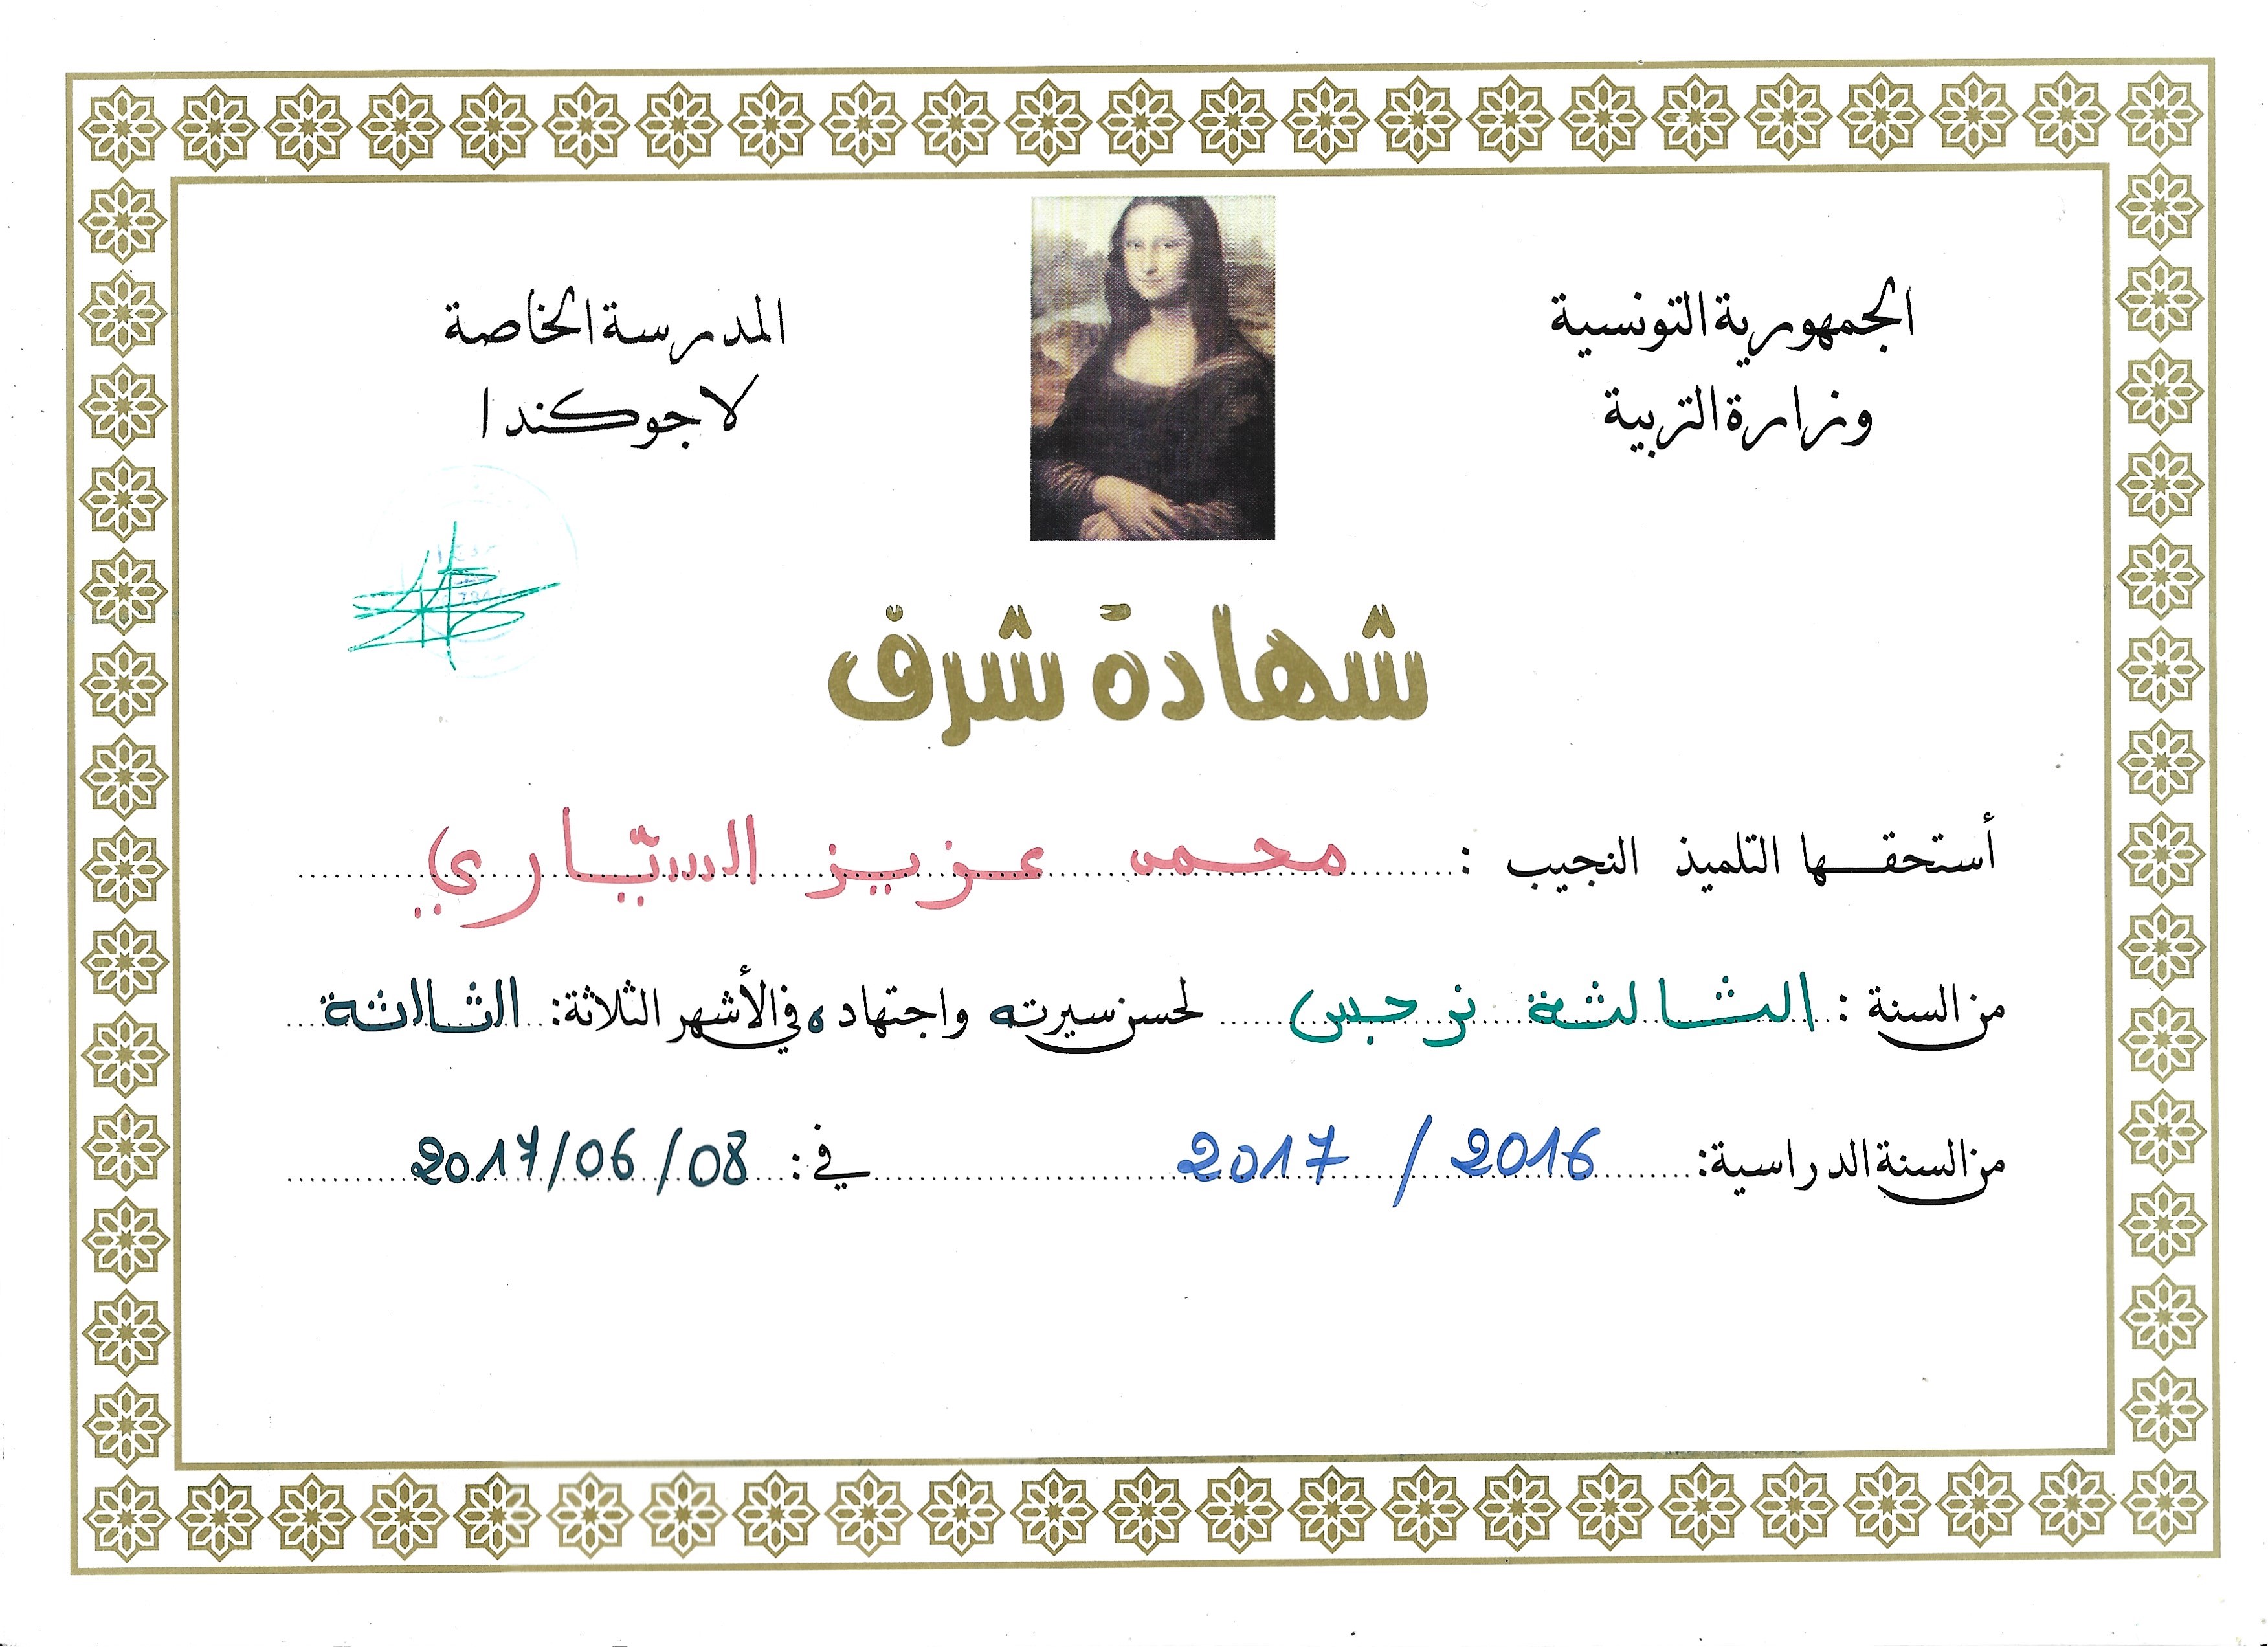 الجمهورية التونسية
وزارة التربية
المدرسة الخاصة
لا جوكندا
شهادة شرف
أستحقها التلميذ النجيب : محمد عزيز الستاري
من السنة : الثالثة نرجس لحسن سيرته واجتهاده في الأشهر الثلاثة: الثالثة
من السنة الدراسية: 2016 / 2017 في : 2017/06/08